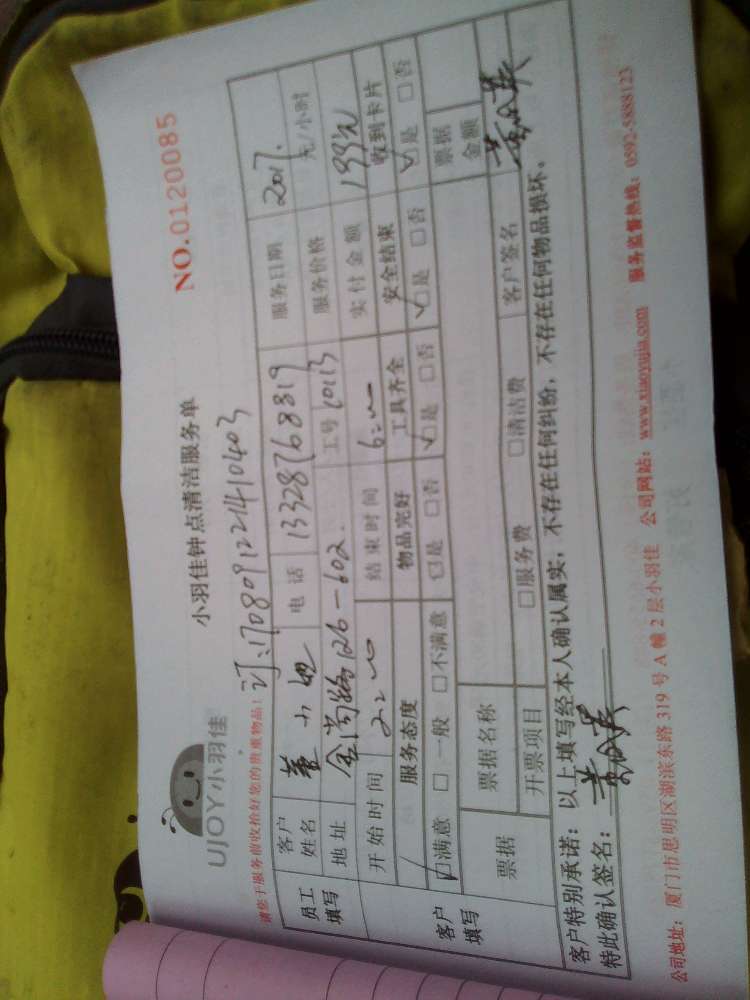 UJOY小羽佳
小羽佳钟点清洁服务单
NO.0120085
请您于服务前收拾好您的贵重物品!
订:1708091221410403
员工填写
客户姓名 小姐 电话 13328768819 服务日期 2017.
地址 金尚路126-602. 工号 10113 服务价格 元/小时
开始时间 结束时间 实付金额 199元
客户填写
服务态度 物品完好 工具齐全 安全结束 收到卡片
☑满意 □一般 □不满意 □是 □否 ☑是 □否 ☑是 □否 ☑是 □否
票据 票据名称 票据金额
开票项目 □服务费 □清洁费 客户签名
客户特别承诺:以上填写经本人确认属实,不存在任何纠纷,不存在任何物品损坏。
特此确认签名:
公司地址:厦门市思明区湖滨东路319号A幢2层小羽佳 公司网站:www.xiaoyujia.com 服务监督热线:0592-5888123